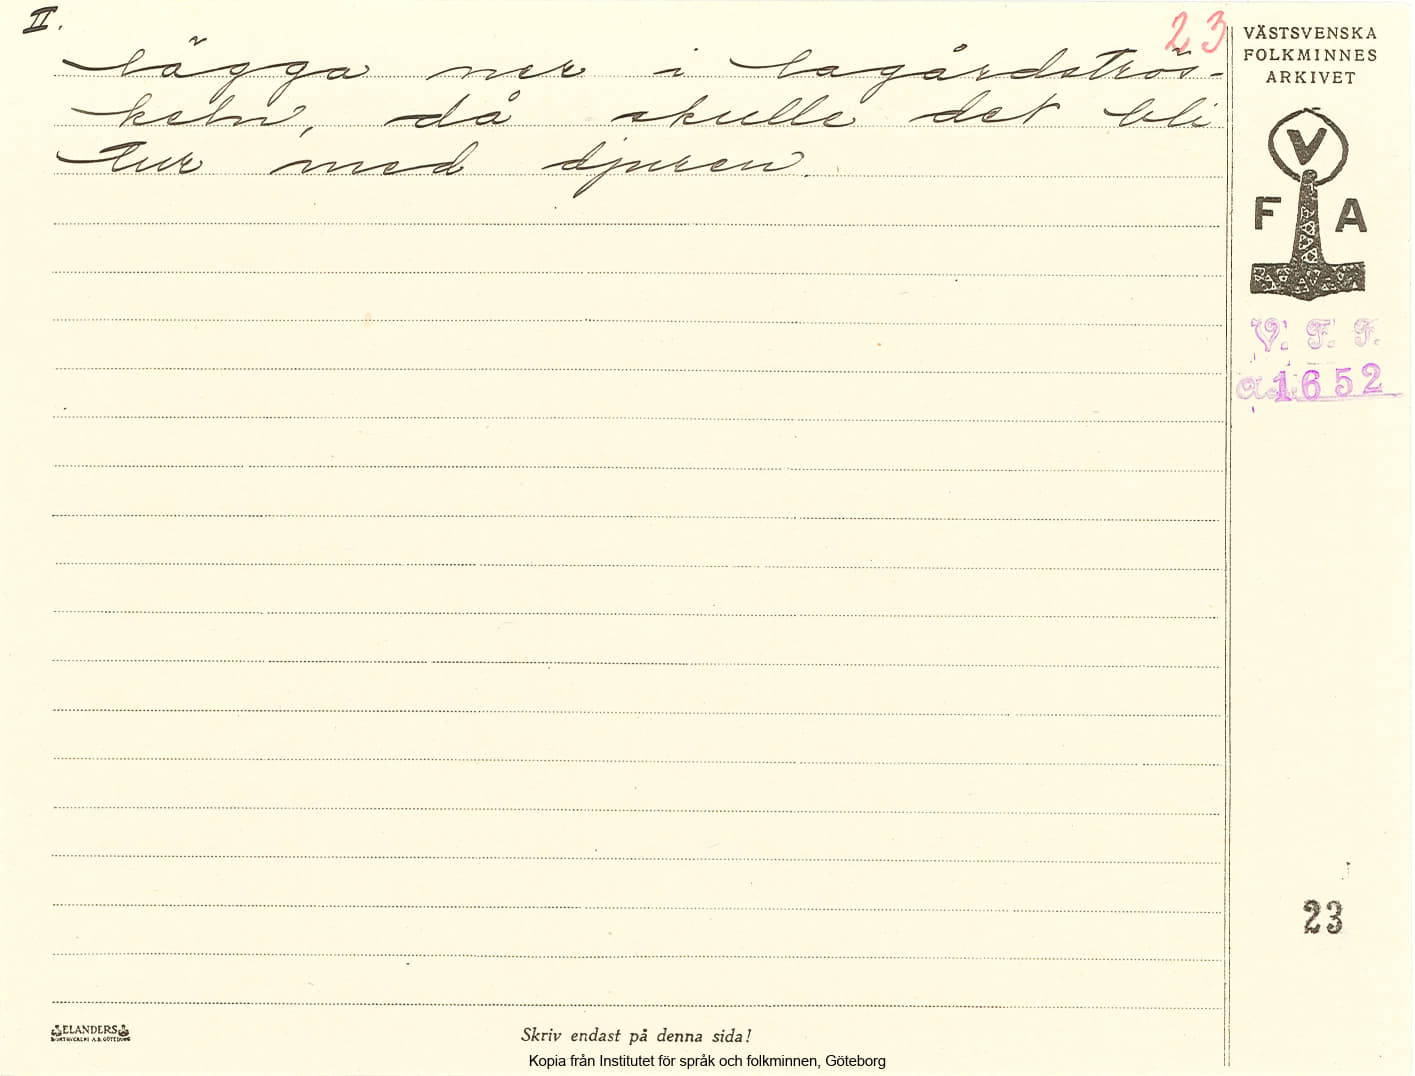 II.
23
lägga ner i lagårdströs-
keln, då skulle det bli
tur med djuren.
VÄSTSVENSKA
FOLKMINNES
ARKIVET
V
F A
V. F. F.
1652
23
ELANDERS
Skriv endast på denna sida!
Kopia från Institutet för språk och folkminnen, Göteborg